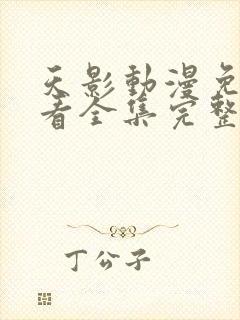 天影動漫免
看全集完整
丁公子